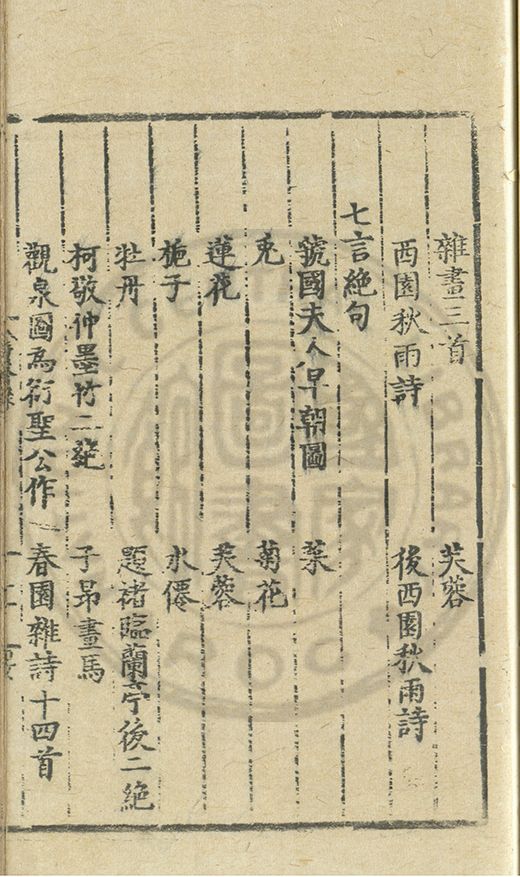 雜畫三首　芙蓉
西園秋雨詩　後西園秋雨詩
七言絕句
虢國夫人早朝圖　葉
兎　菊花
蓮花　芙蓉
梔子　水僊
牡丹　題褚臨蘭亭後二絕
柯敬仲墨竹二絕　子昻畫馬
觀泉圖為衍聖公作　春園雜詩十四首